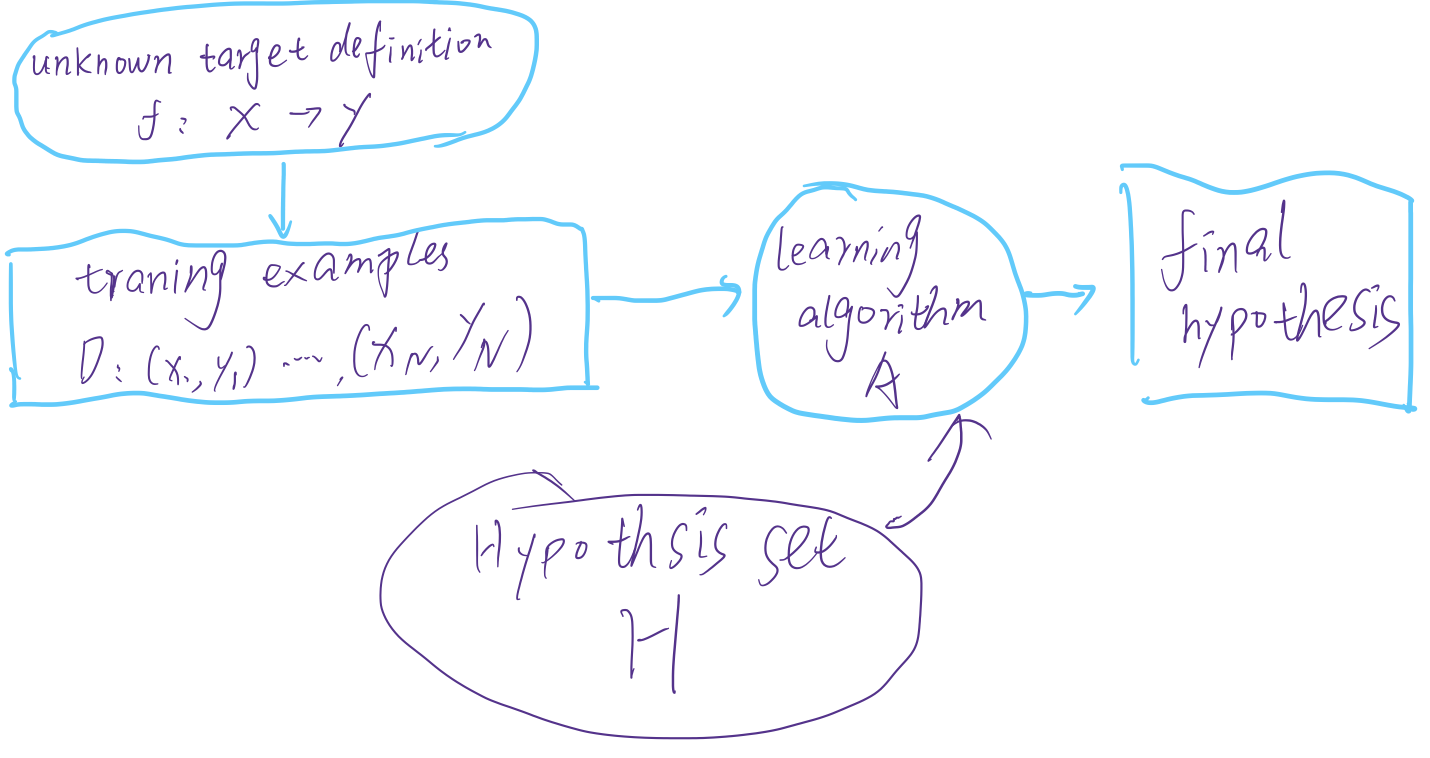 unknown target definition
f: X → Y
traning examples
D: (x₁, y₁) ...., (x_N, y_N)
learning
algorithm
A
final
hypothesis
Hypothsis set
H